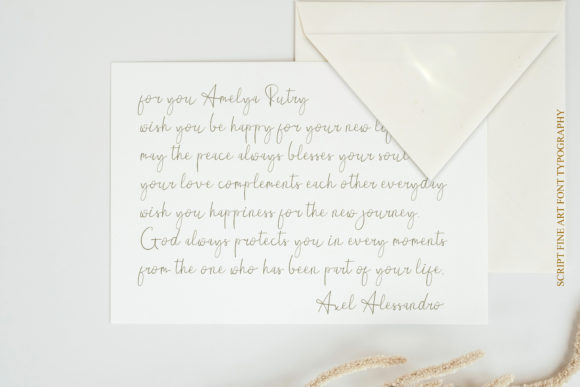 for you Amelya Putry
wish you be happy for your new
may the peace always blesses your soul
your love complements each other everyday
wish you happiness for the new journey.
God always protects you in every moments
from the one who has been part of your life.
Axel Alessandro
SCRIPT FINE ART FONT TYPOGRAPHY